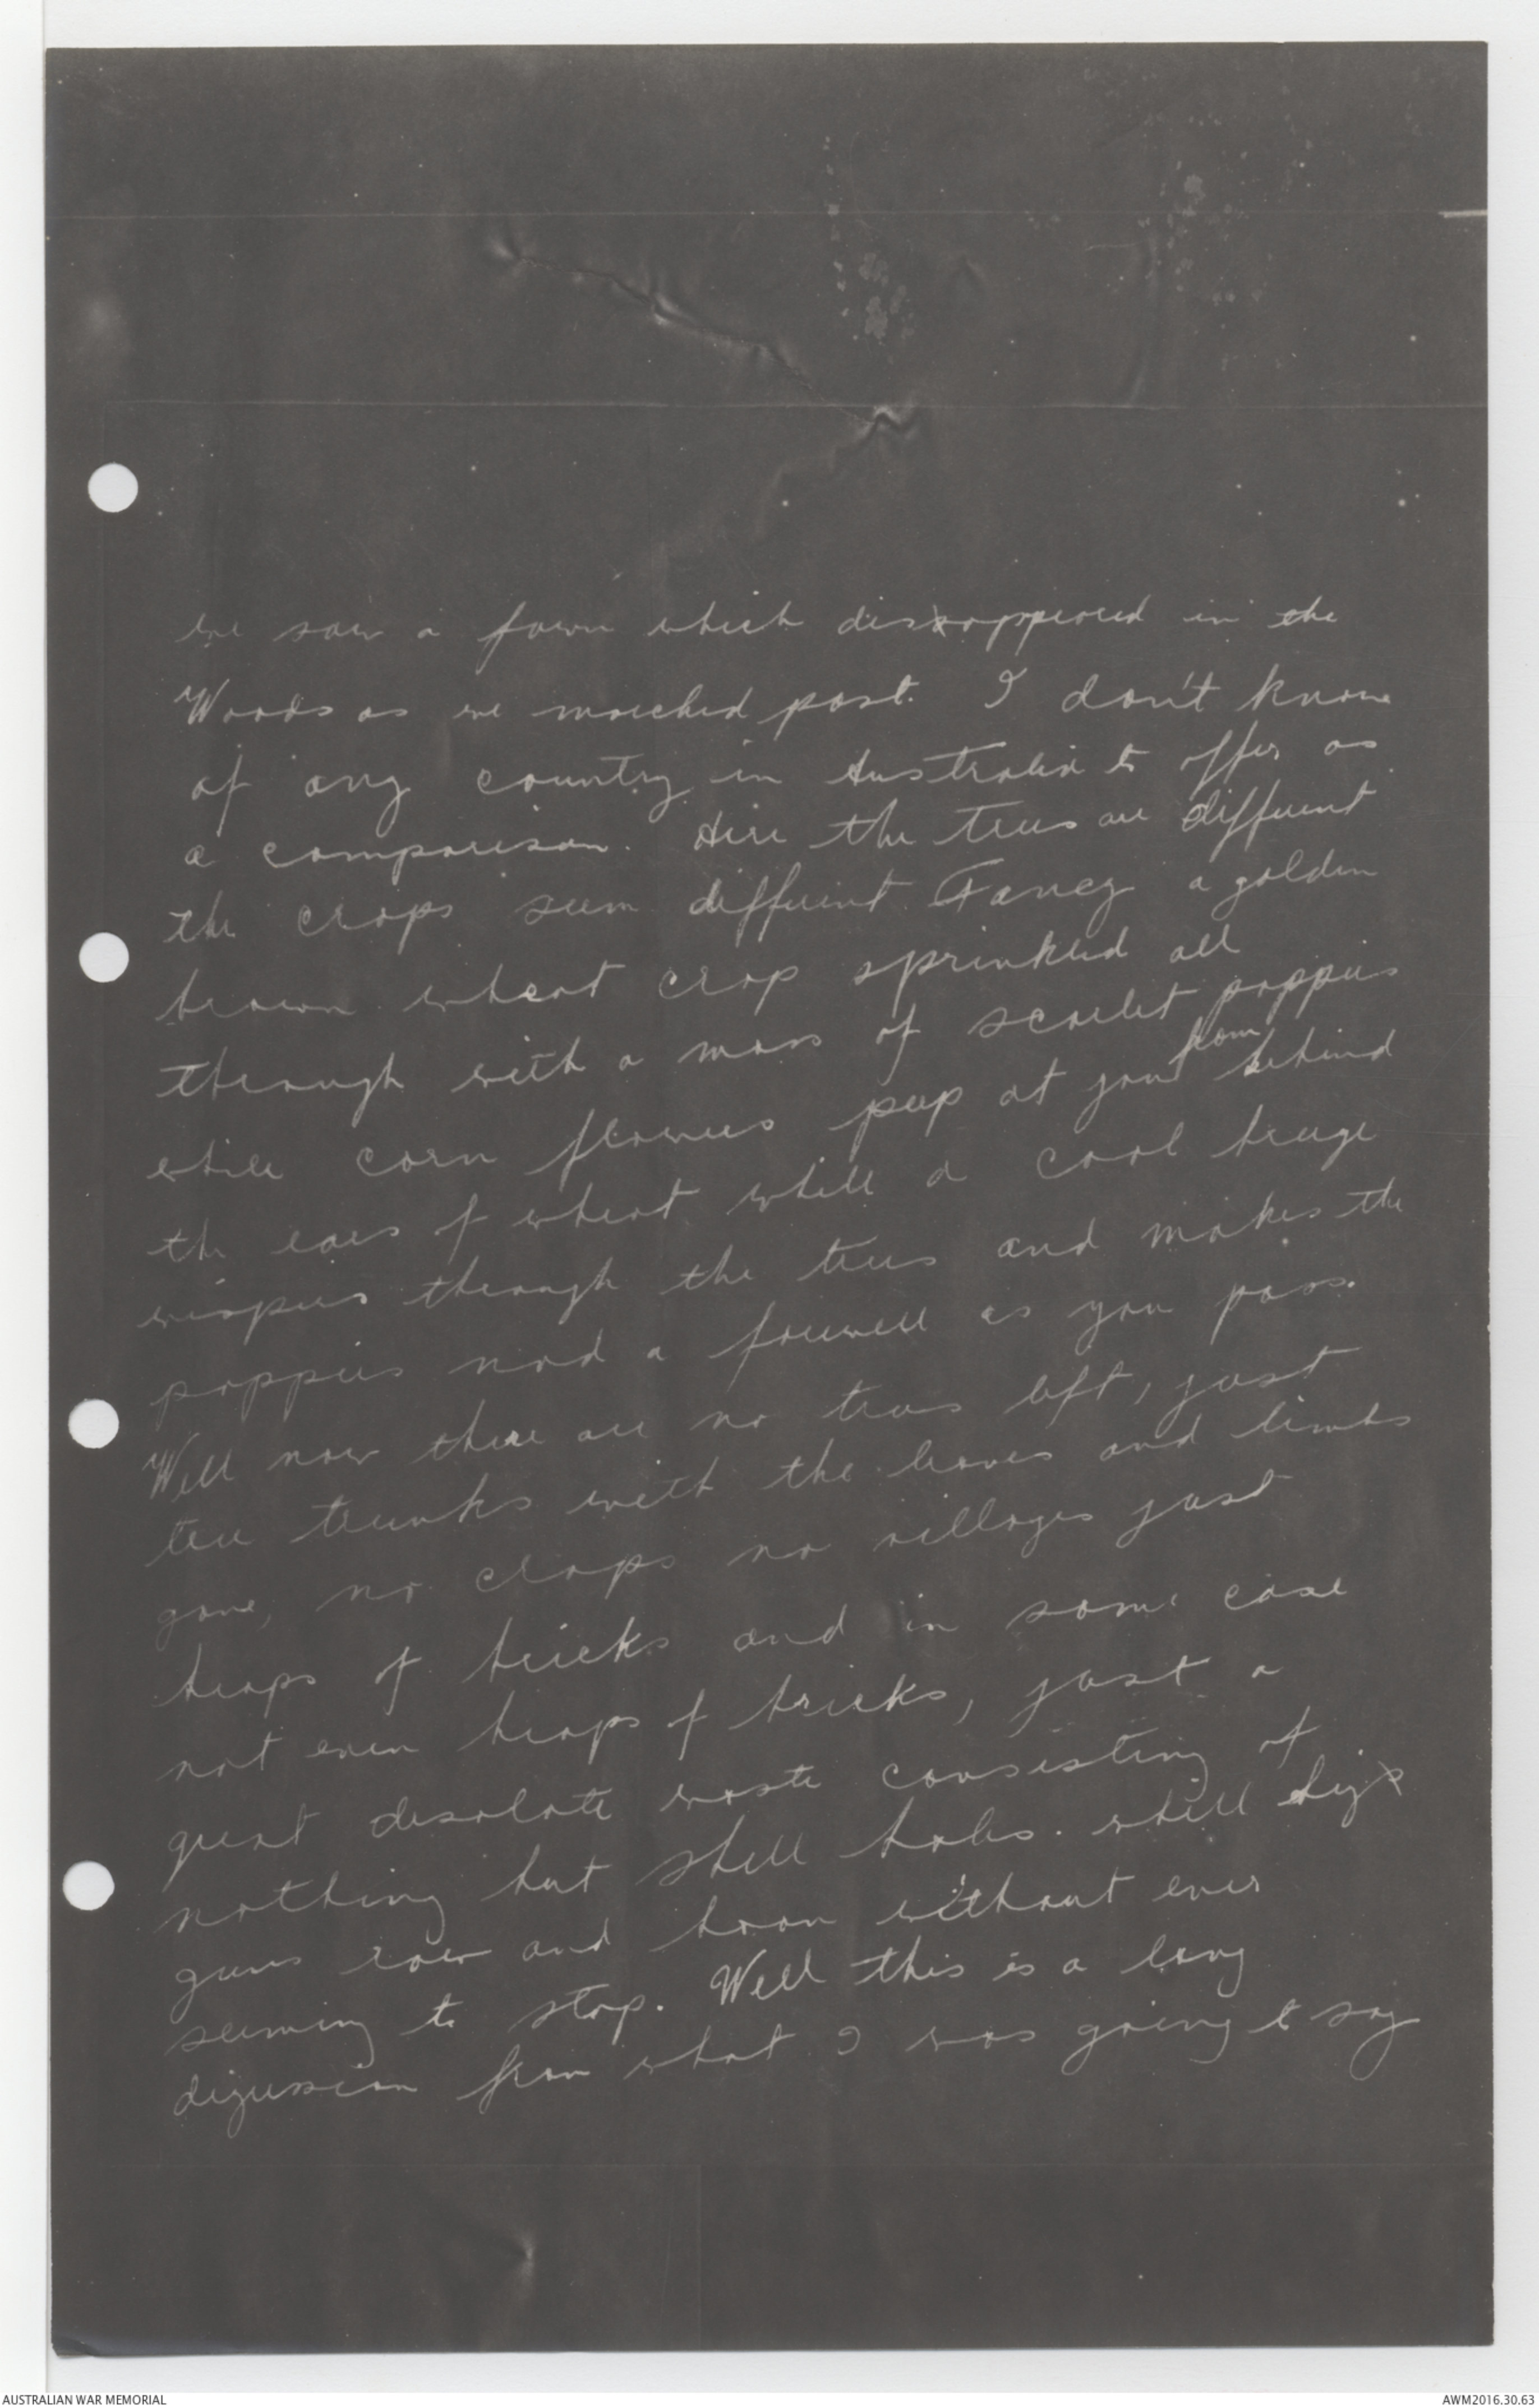 we saw a fawn which disappeared in the
Woods as we marched past. I don't know
of any country in Australia to offer as
a comparison. Here the trees are different
the crops seem different Fancy a golden
brown wheat crop sprinkled all
through with a mass of scarlet poppies
while corn flowers peep at you from behind
the ears of wheat while a cool breeze
wispers through the trees and makes the
poppies nod a farewell as you pass.
Well now there are no trees left, just
tree trunks with the leaves and limbs
gone, no crops no villages just
heaps of bricks and in some case
not even heaps of bricks, just a
great desolate waste consisting of
nothing but shell holes. while big
guns roar and boom without ever
seeming to stop. Well this is a long
digression from what I was going to say
AUSTRALIAN WAR MEMORIAL
AWM2016.30.63